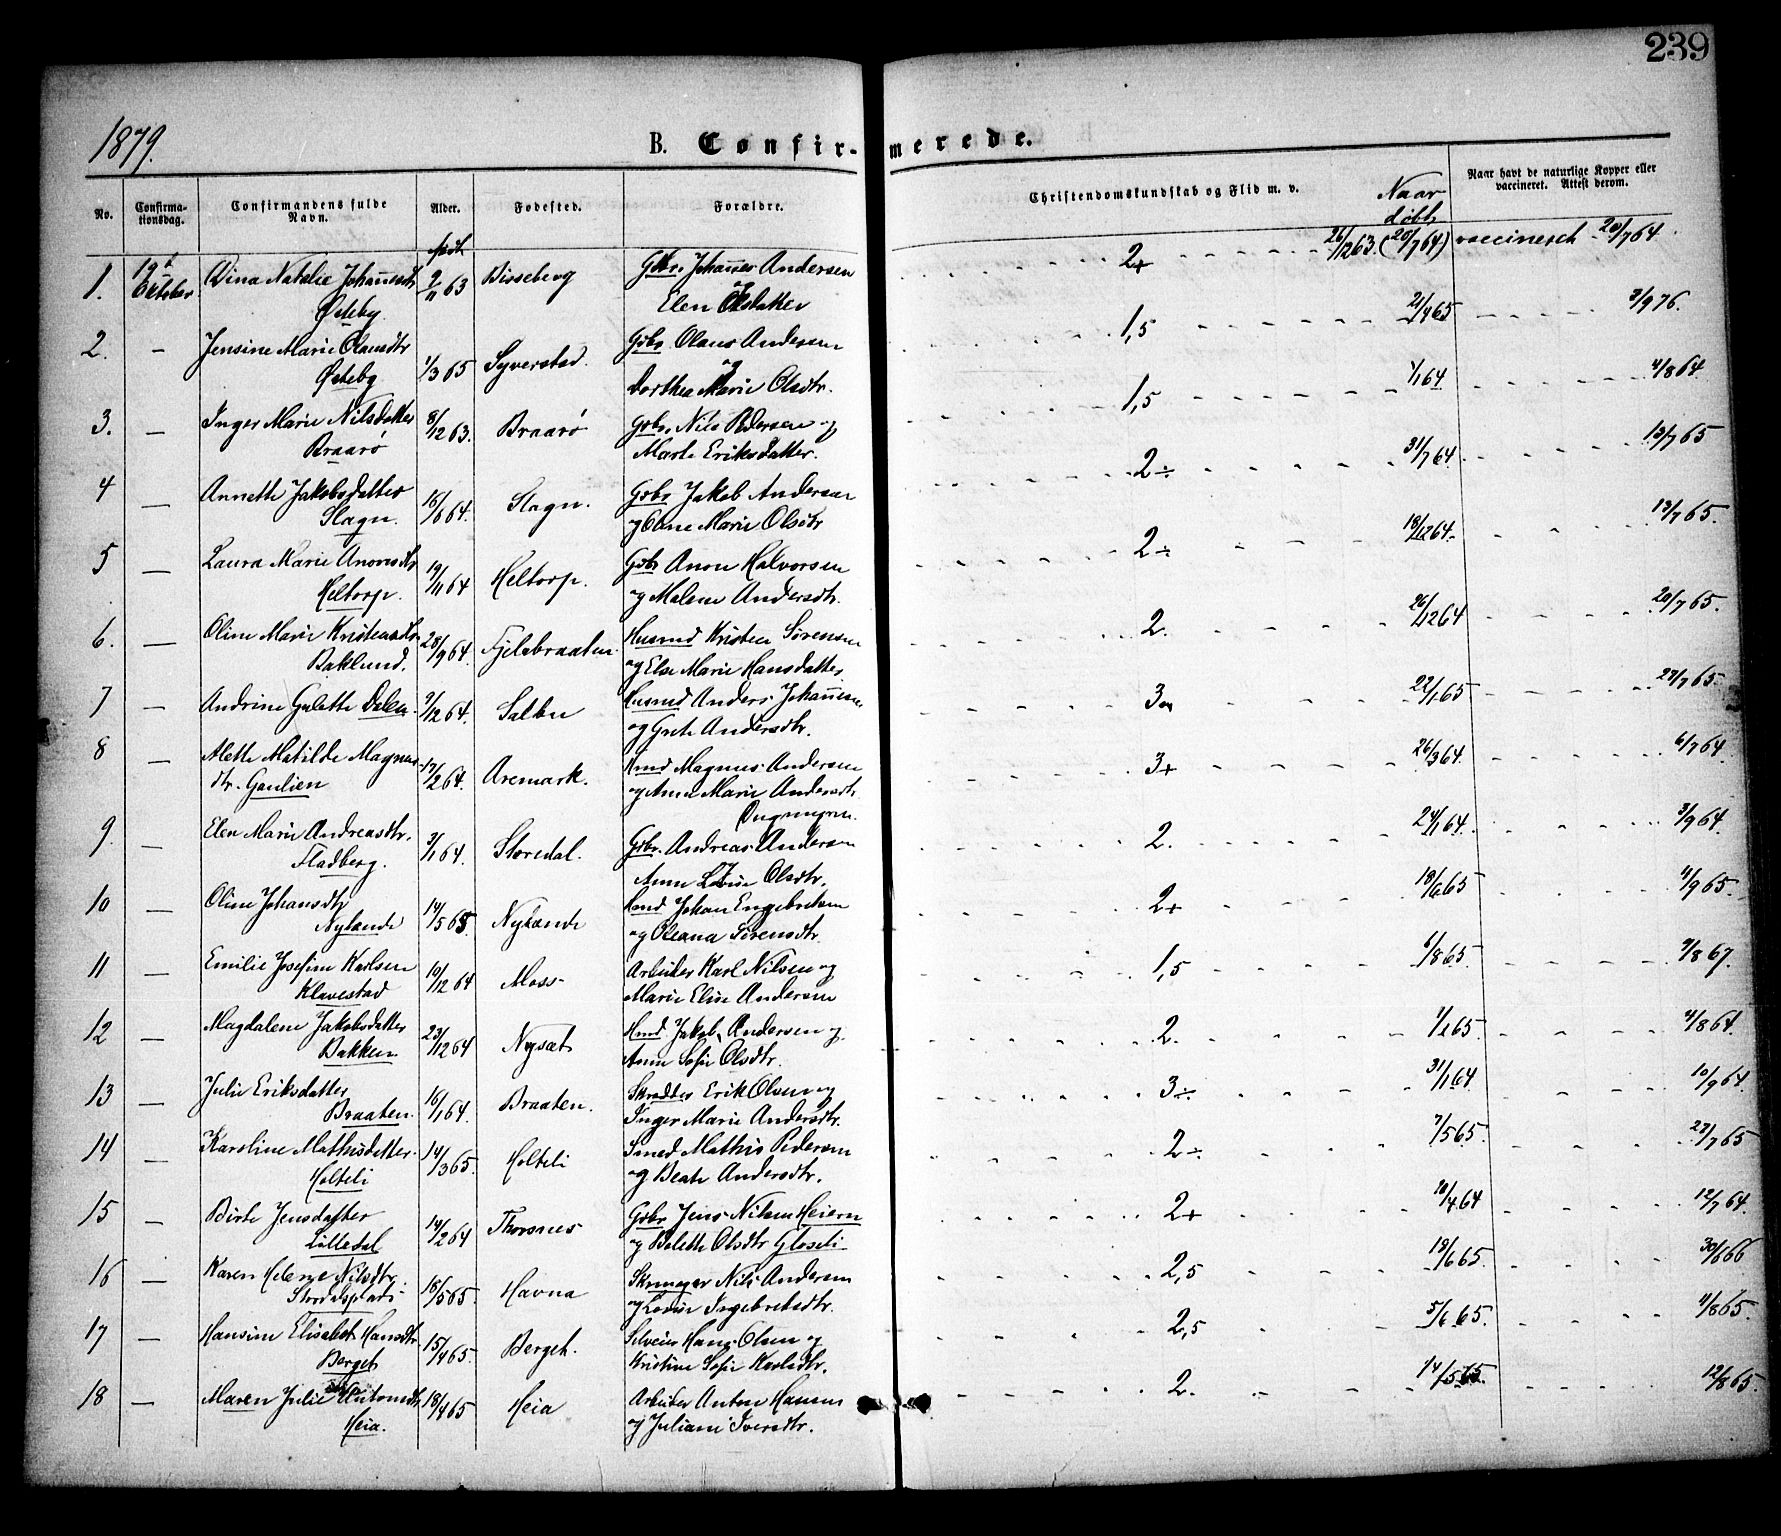 239
1879.
B. Confir- merede.
No.
Confirma-
tionsdag.
Confirmandens fulde
Navn.
Alder.
Fødested.
Forældre.
Christendomskundskab og Flid m. v.
Naar
døbt
Naar havt de naturlige Kopper eller
vaccineret. Attest derom.
født
1. 19d Oktober Dina Natalie Johannesdtr 2/11 63 Bisseberg Gbr. Johannes Andersen 2+ 26/12 63. (20/7 64) vaccineret 20/7 64
Østeby. Elen Olsdatter
2. - Jensine Marie Olausdtr 1/3 65 Syverstad. Gbr Olaus Andersen 1,5 21/4 65 3/9 76.
Østeby og Dorthea Marie Olsdtr.
3. - Inger Marie Nilsdatter 8/12 63. Braarø Gbr. Nils Pedersen og 1,5 1/1 64 4/8 64
Braarø Marte Eriksdatter.
4 - Annette Jakobsdatter 16/6 64. Slagn. Gbr Jakob Andersen 2÷ 31/7 64 13/7 65
Slagn. og Anne Marie Olsdtr
5 - Laura Marie Anonsdtr 19/11 64 Heltorp. Gbr Anon Halvorsen 2÷ 18/12 64. 13/7 65.
Heltorp. og Malene Andersdtr.
6. - Oline Marie Kristensdtr 28/9 64. Fjelebraaten Husmd Kristen Sørensen 2. 26/12 64 20/7 65.
Baklund. og Else Marie Hansdatter
7 - Andrine Gulette Dalen 9/12 64. Salbu Husmd Anders Johannesen 3 22/1 65 27/7 65.
og Grete Andersdtr.
8 - Alette Matilde Magnus- 17/2 64. Aremark. Hmd Magnus Andersen 3+ 26/3 64. 6/7 64.
dtr. Gaulien og Anne Marie Andersdtr
9. - Elen Marie Andreasdtr. 3/1 64. Storedal. Gbr. Andreas Andersen 2. 24/1 64. 3/9 64.
Fladberg. Anne Lovise Olsdtr.
10 - Oline Johansdtr 14/5 65 Nylænde Hmd Johan Engebretsen 2+ 18/6 65 4/9 65.
Nylænde og Oleana Sørensdtr
11 - Emilie Josefine Karlsen 10/12 64 Moss Arbeider Karl Nilsen og 1,5 6/8 65. 9/8 67.
Klavestad Marie Elise Andersen
12 - Magdalene Jakobsdatter 23/12 64 Nysæt Hmd Jakob Andersen og 2. 1/1 65 4/8 64.
Bakken. Anne Sofie Olsdtr.
13 - Julie Eriksdatter 16/1 64. Braaten. Skrædder Erik Olsen og 3÷ 31/1 64 10/9 64
Braaten. Inger Marie Andersdtr.
14 - Karoline Mathisdatter 14/3 65. Holteli Smed Mathis Pedersen 2÷ 7/5 65. 27/7 65
Holteli og Beate Andersdtr.
15 - Birte Jensdatter 14/2 64 Thorsnes Gbr Jens Nilsen Heiern 2+ 10/4 64 12/7 64.
Lilledal og Bolette Olsdtr Gloseli
16 - Karen Helene Nilsdtr 18/5 65. Havna Skomager Nils Andersen 2,5 18/6 65. 30/6 66
og Lovise Ingebretsdtr.
17 - Hansine Elisabet Hansdtr 15/4 65. Berget. Selveier Hans Olsen og 2,5 5/6 65. 4/8 65.
Berget Kristine Sofie Karlsdtr.
18 - Maren Julie Antonsdtr 18/4 65 Heia Arbeider Anton Hansen 2. 14/5 65. 12/8 65.
Heia. og Juliane Iversdtr.